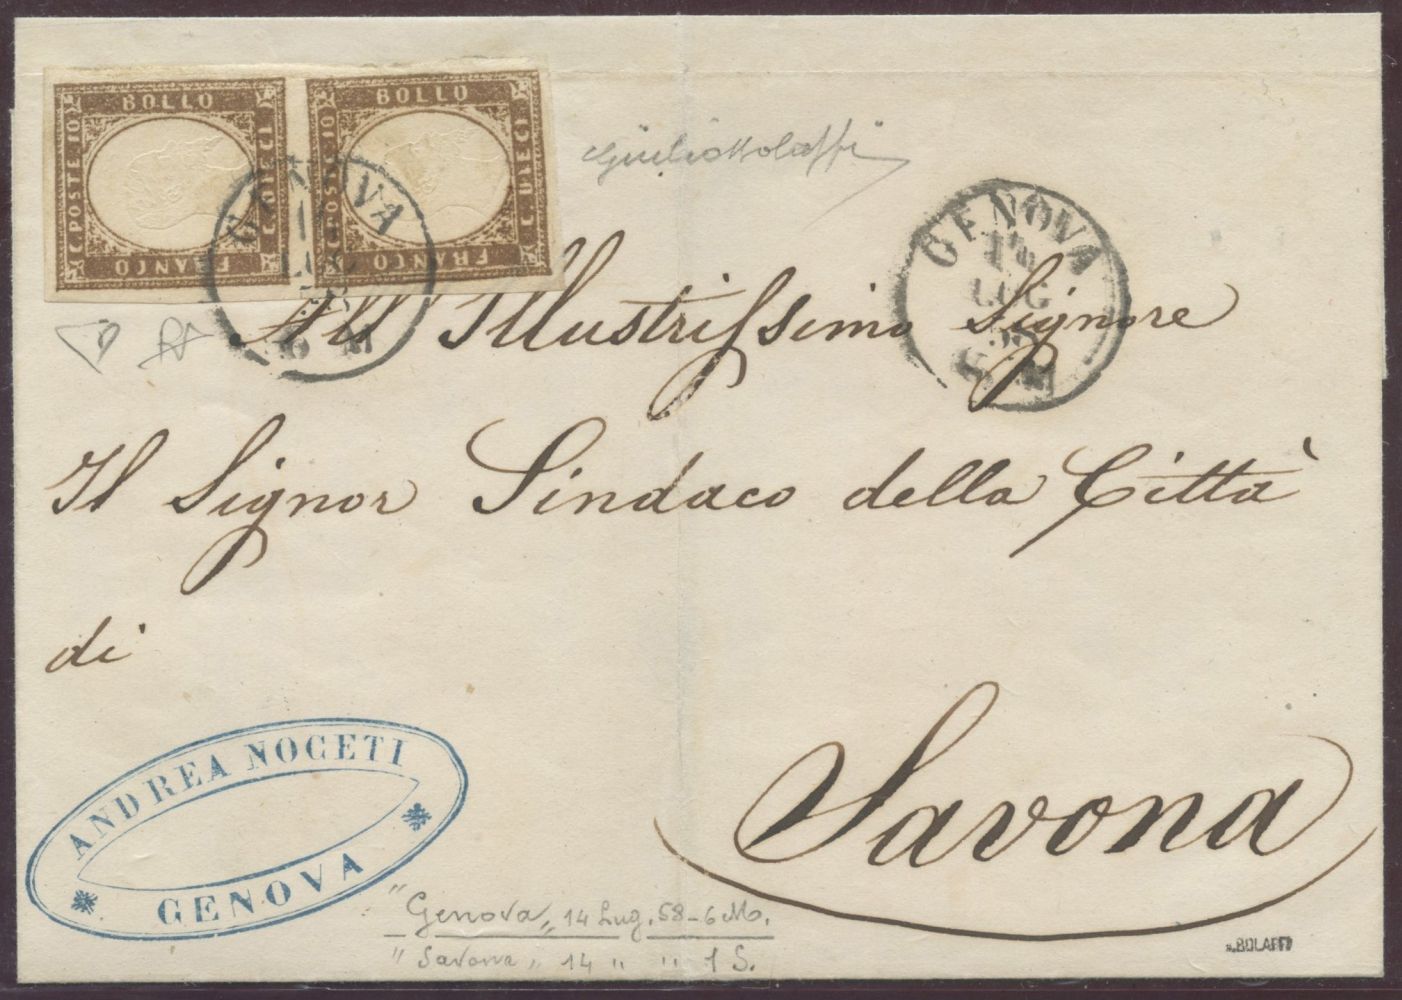 BOLLO
C. POSTE 10
C. DIECI
FRANCO
BOLLO
C. POSTE 10
C. DIECI
FRANCO
GENOVA
14
LUG
58
6 M
Giulio Bolaffi
GENOVA
14
LUG
58
6 M
All' Illustrissimo Signore
Il Signor Sindaco della Città
di
Savona
ANDREA NOCETI
GENOVA
"Genova" 14 Lug. 58 - 6 M.
"Savona" 14 " " 1 S.
A. BOLAFFI